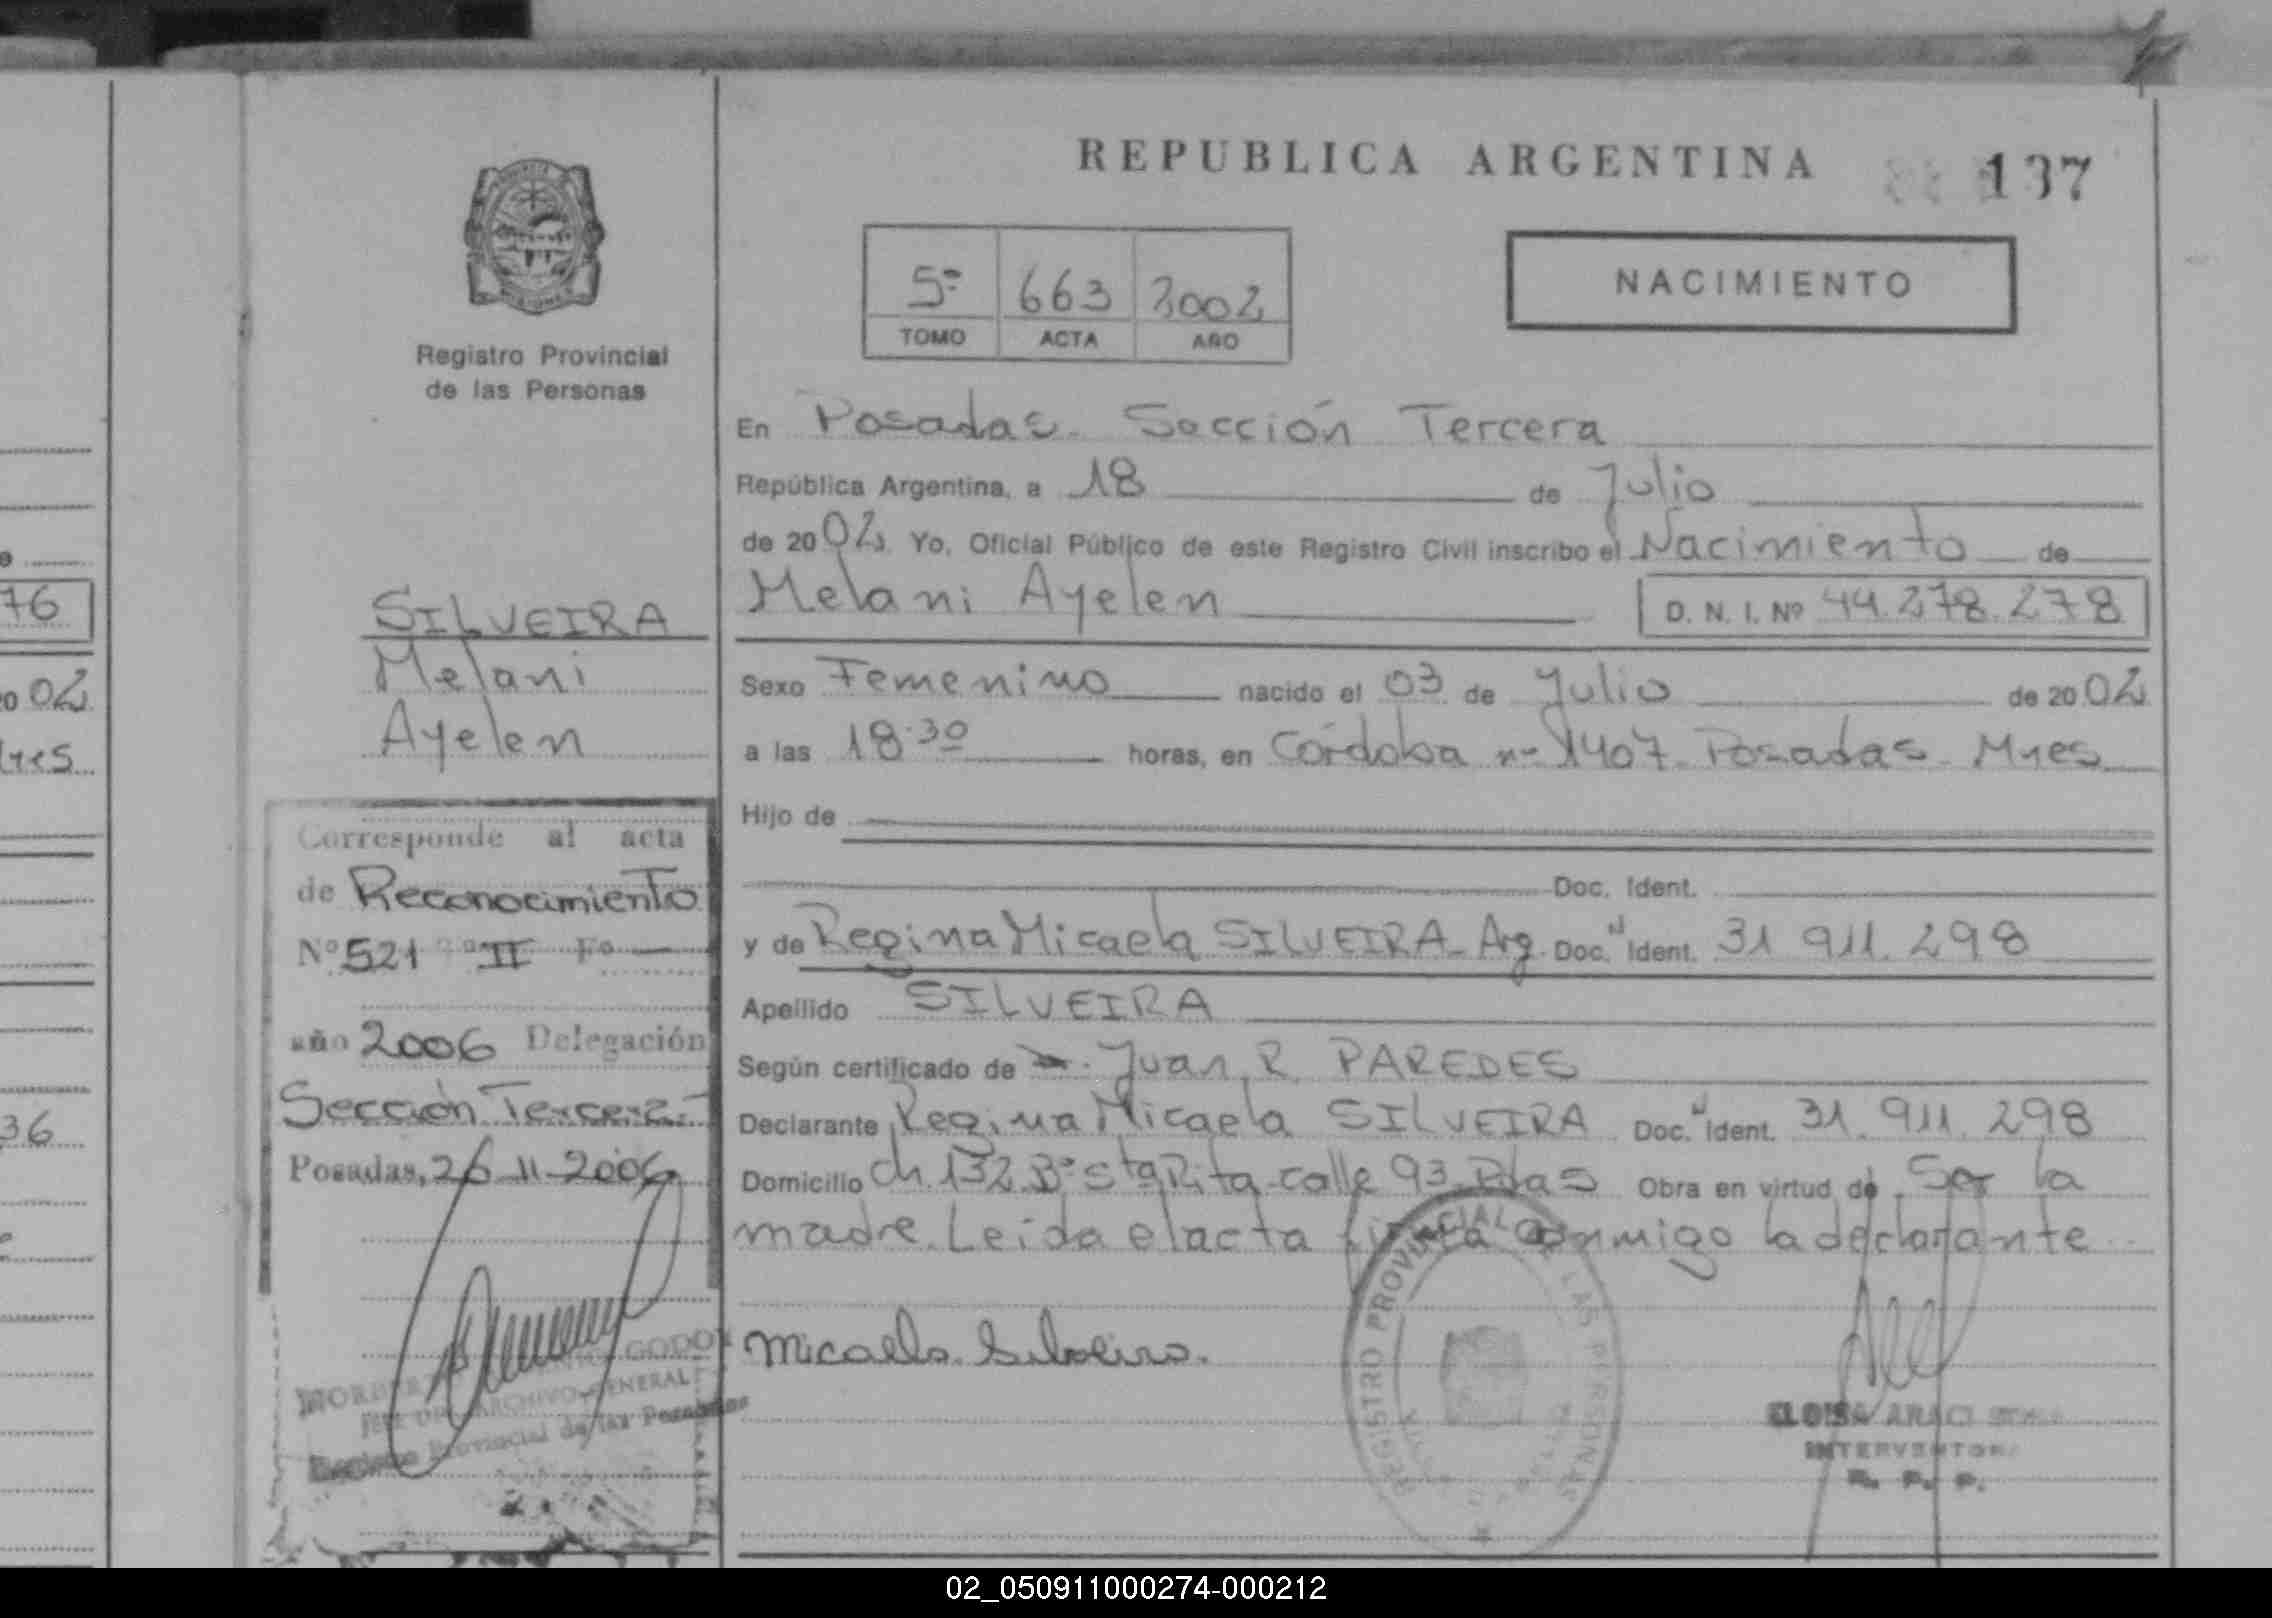 REPUBLICA ARGENTINA
137
NACIMIENTO
5º 663 2002
TOMO ACTA AÑO
Registro Provincial
de las Personas
SILVEIRA
Melani
Ayelen
Corresponde al acta
de Reconocimiento
Nº 521 Tº II Fº —
año 2006 Delegación
Sección Tercera
Posadas, 26-11-2006
GODOY
JEFE DE ARCHIVO GENERAL
Registro Provincial de las Personas
En Posadas. Sección Tercera
República Argentina, a 18 de Julio
de 2002 Yo, Oficial Público de este Registro Civil inscribo el Nacimiento de
Melani Ayelen D. N. I. Nº 44.278.278
Sexo Femenino nacido el 03 de Julio de 2002
a las 18.30 horas, en Córdoba nº 1407. Posadas. Mnes
Hijo de
Doc. Ident.
y de Regina Micaela SILVEIRA - Arg. Doc. N Ident. 31 911.298
Apellido SILVEIRA
Según certificado de Juan R. PAREDES
Declarante Regina Micaela SILVEIRA Doc. N Ident. 31.911.298
Domicilio Ch. 132 Bº Sta Rita calle 93. Pdas Obra en virtud de Ser la
madre. Leída el acta firma conmigo la declarante
Micaela Silveira.
REGISTRO PROVINCIAL DE LAS PERSONAS
ELOISA ARACI
INTERVENTORA
R. P. P.
76
20 02
36
02_050911000274-000212